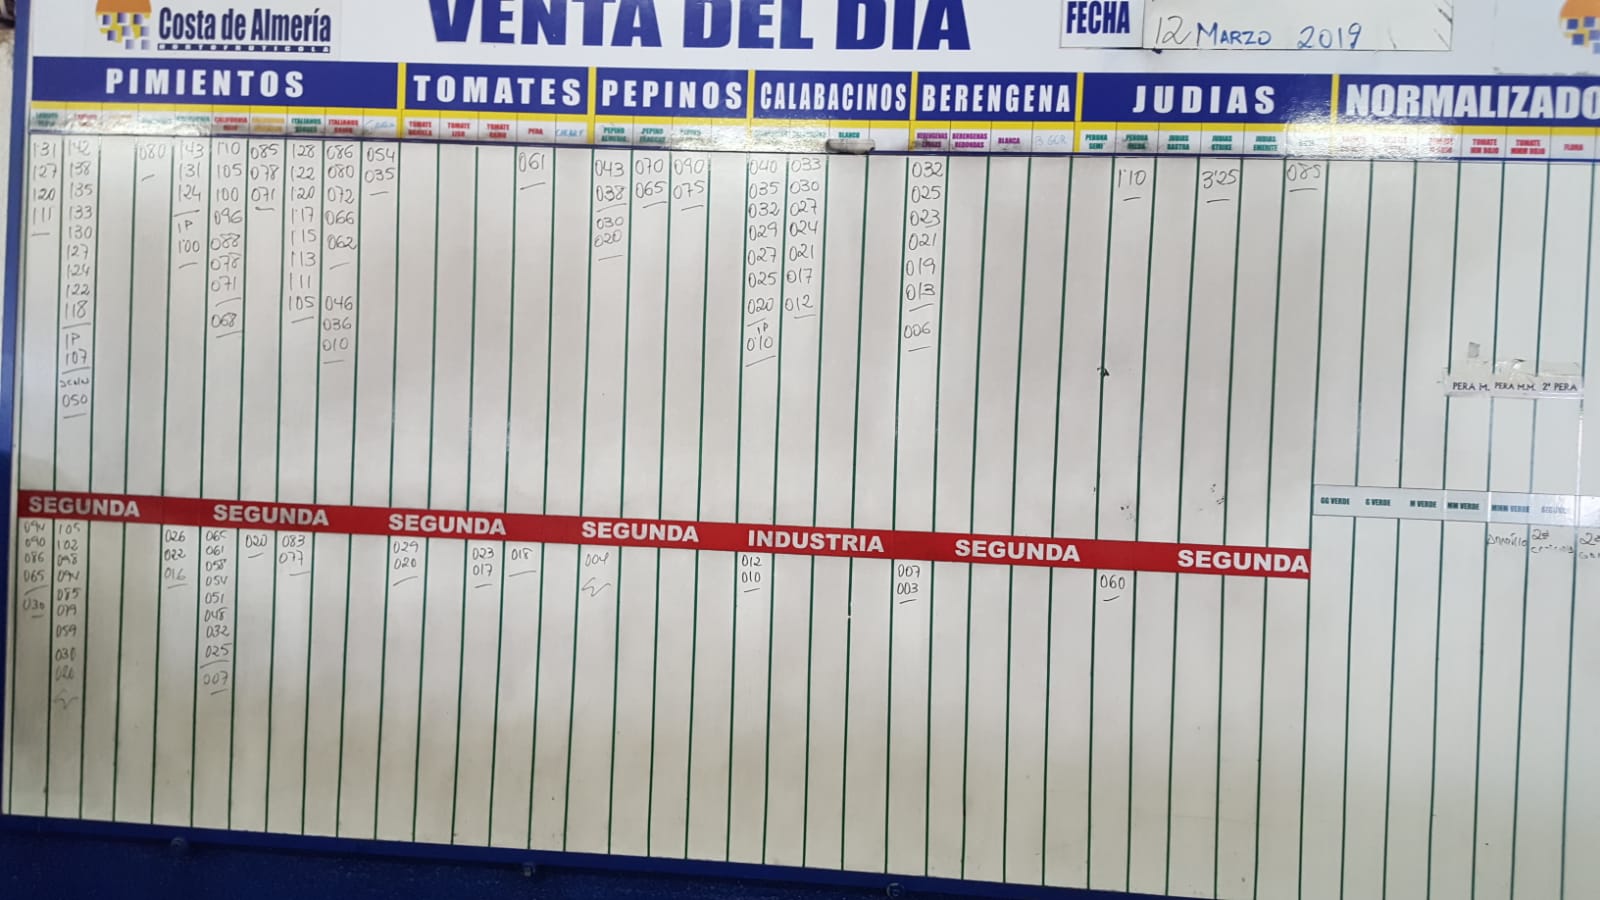 Costa de Almería
HORTOFRUTICOLA
VENTA DEL DIA
FECHA
12 MARZO 2019
PIMIENTOS
TOMATES
PEPINOS
CALABACINOS
BERENGENA
JUDIAS
NORMALIZADO
CALIFORNIA ROJO
ITALIANOS VERDES
ITALIANOS ROJOS
TOMATE LISO
TOMATE RAMO
PERA
PEPINO ALMERIA
PEPINO FRANCES
BLANCO
BERENGENAS REDONDAS
BLANCA
PERONA SEMI
PERONA ROJA
JUDIAS RASTRA
JUDIAS STRIKE
JUDIAS EMERITE
TOMATE MIX ROJO
TOMATE MINI ROJO
FLORA
131
127
120
111
142
138
135
133
130
127
124
122
118
1P
107
050
080
143
131
124
1P
1'00
110
105
100
096
088
078
071
068
085
078
071
128
122
120
117
115
113
111
105
086
080
072
066
062
046
036
010
054
035
061
043
038
030
020
070
065
090
075
040
035
032
029
027
025
020
1P
010
033
030
027
024
021
017
012
032
025
023
021
019
013
006
1'10
3'25
085
PERA M.
PERA M.M.
2ª PERA
GG VERDE
G VERDE
M VERDE
MM VERDE
MMM VERDE
SEGUNDA
SEGUNDA
SEGUNDA
SEGUNDA
INDUSTRIA
SEGUNDA
SEGUNDA
094
090
086
065
030
105
102
098
094
085
079
059
030
020
026
022
016
065
061
058
054
051
048
032
025
007
020
083
077
029
020
023
017
018
004
012
010
007
003
060
2ª
2ª